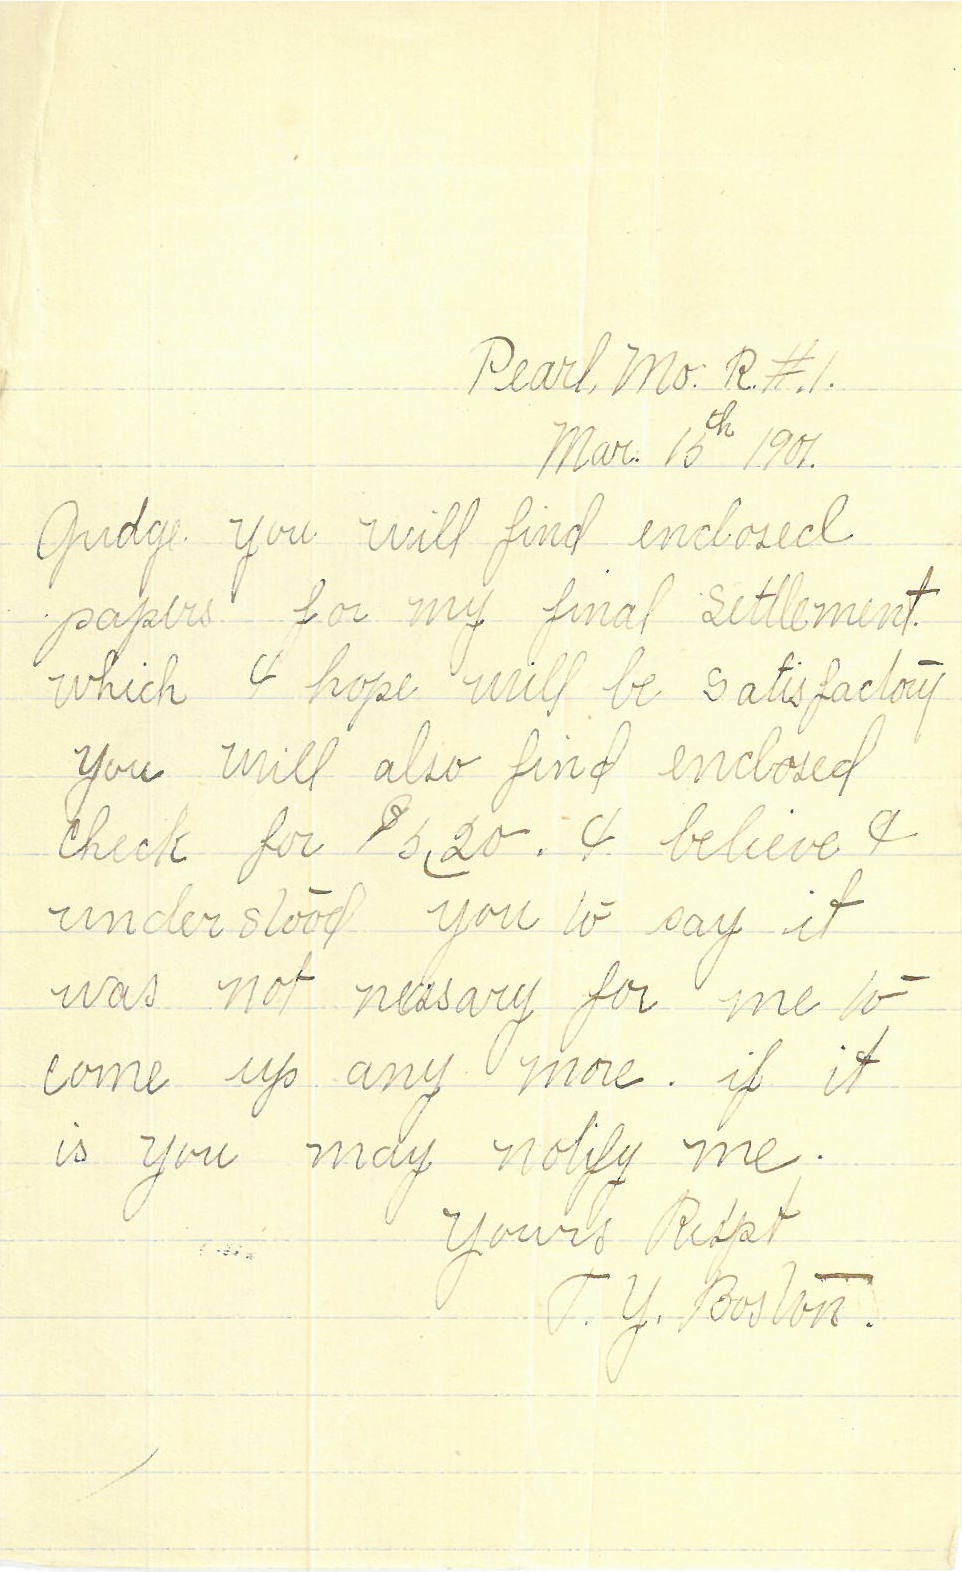 Pearl, Mo. R.#.1.
Mar. 15th 1901.
Judge. you will find enclosed
papers for my final settlement.
which I hope will be satisfactory
you will also find enclosed
check for $5,20. I believe I
understood you to say it
was not nessary for me to
come up any more. if it
is you may notify me.
yours Respt
T. Y. Boston.